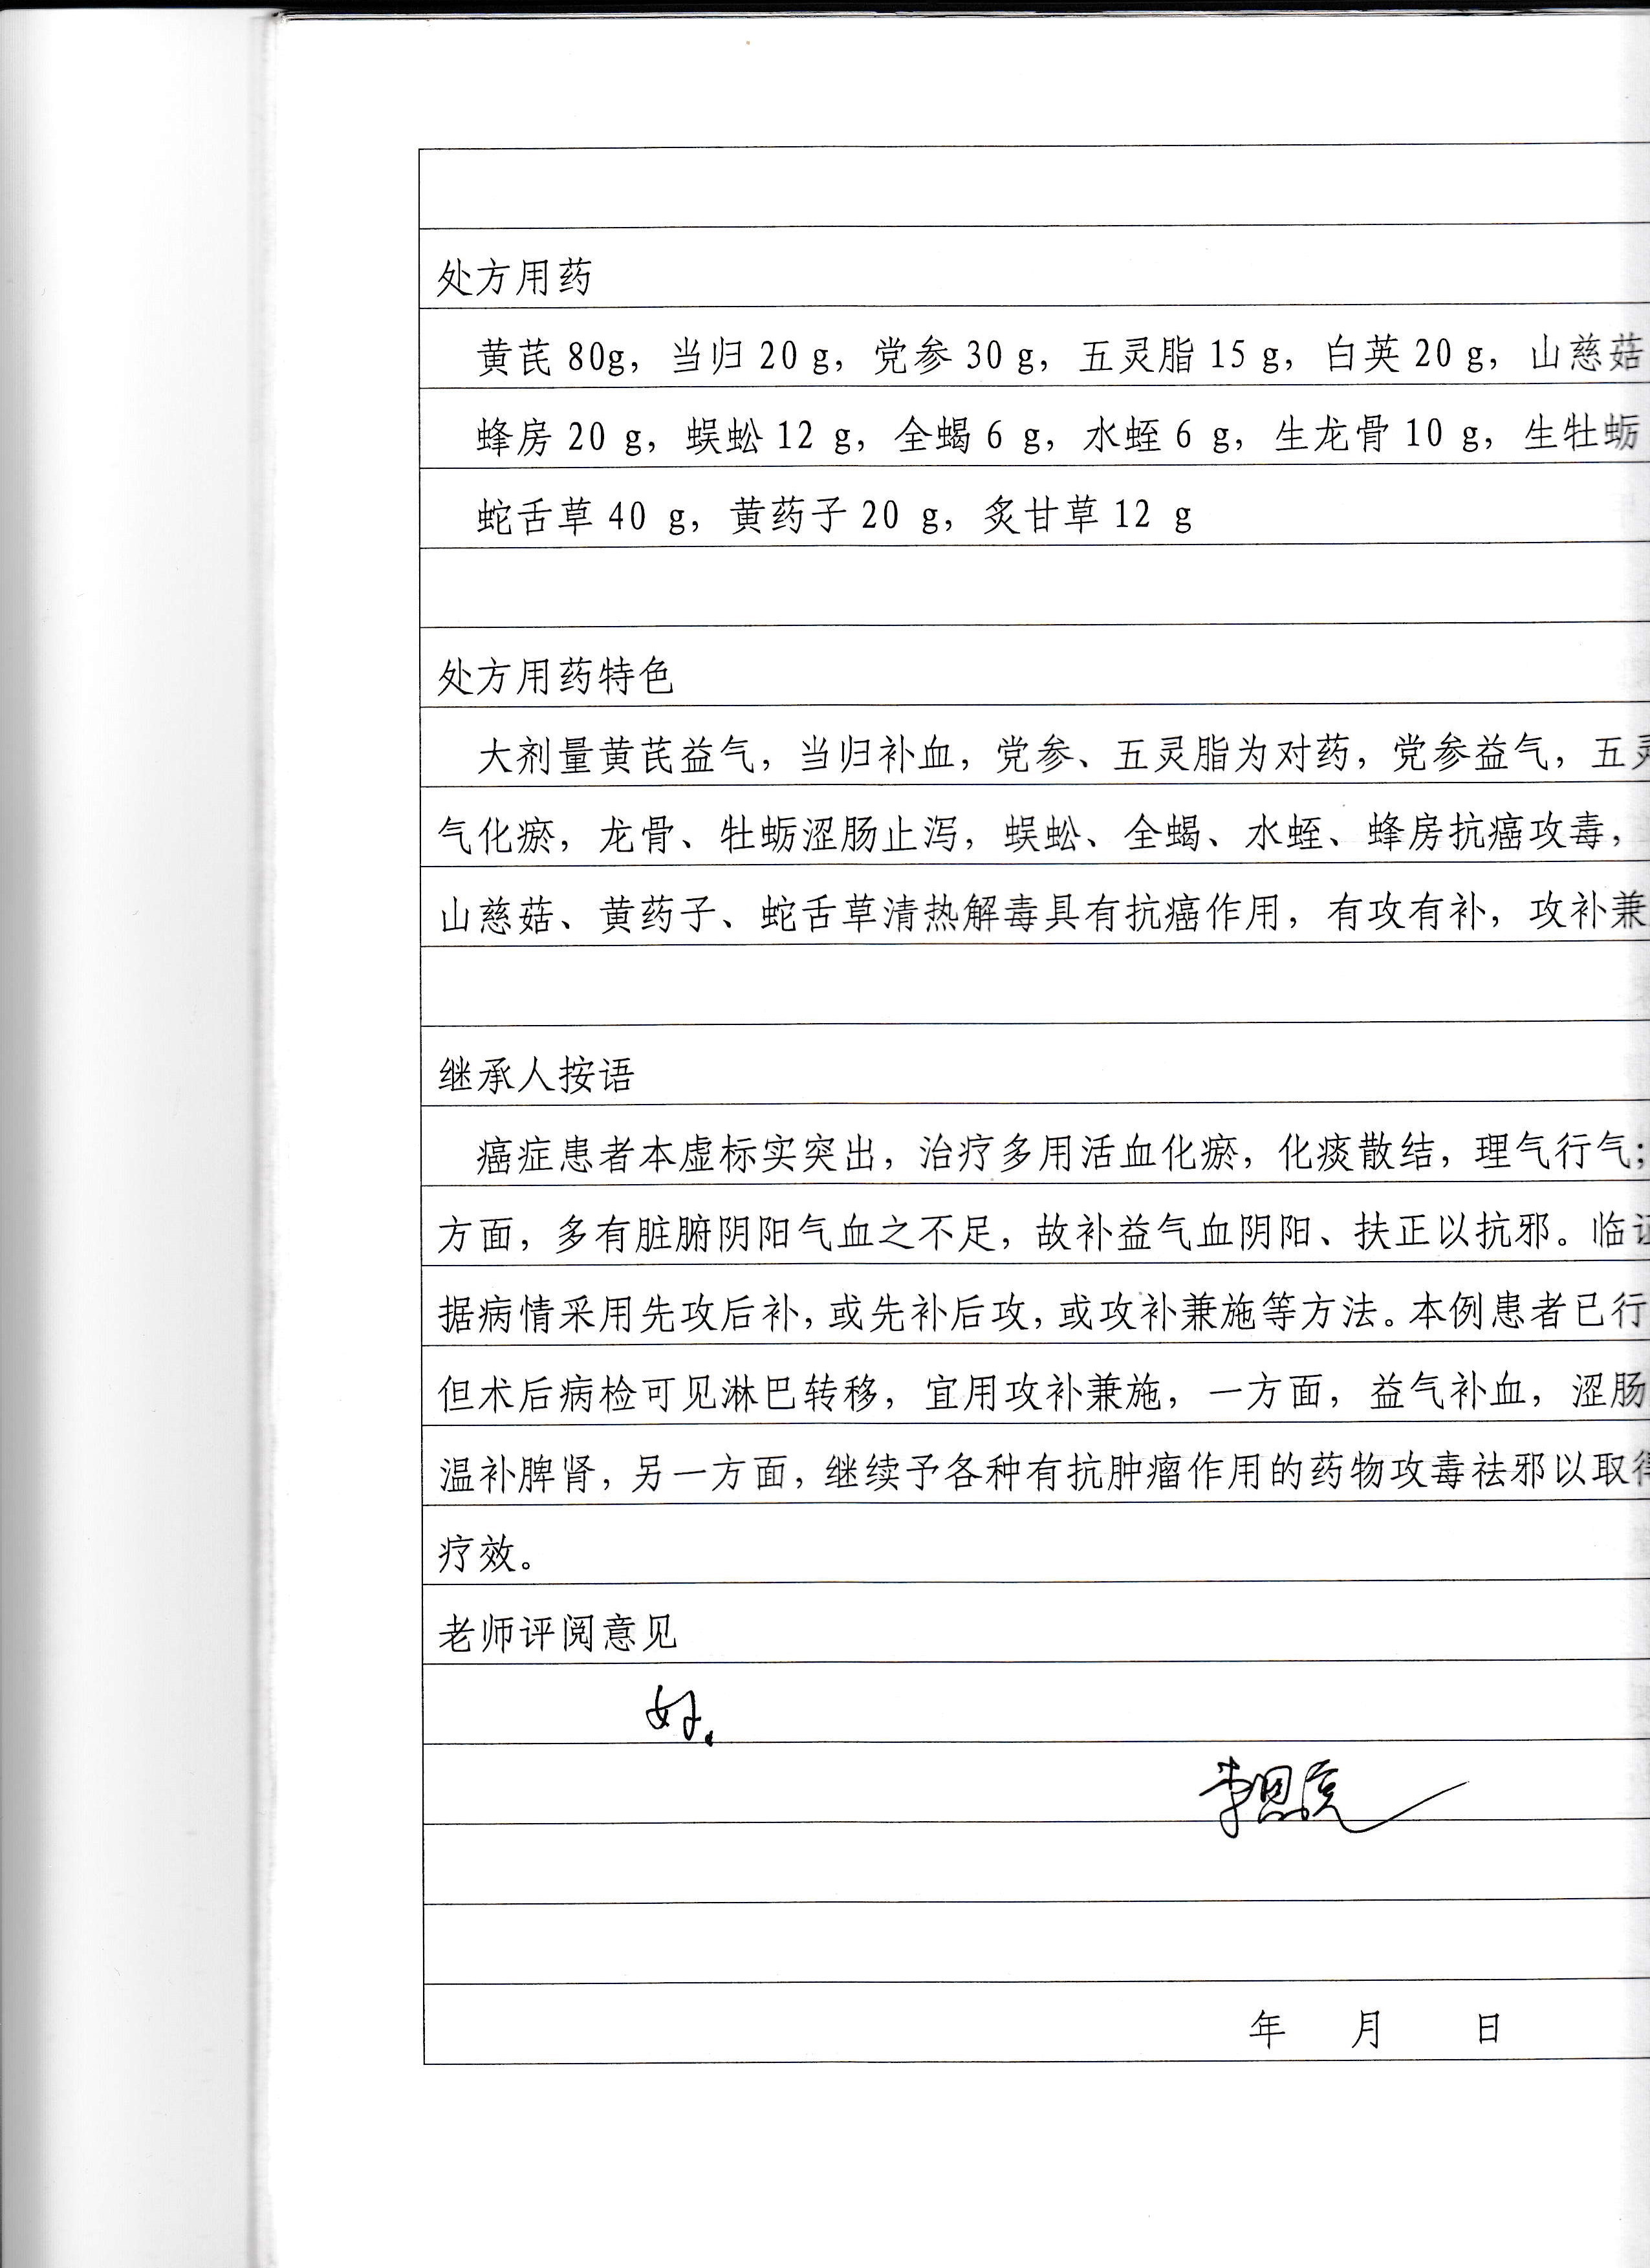 处方用药
黄芪 80g，当归 20 g，党参 30 g，五灵脂 15 g，白英 20 g，山慈菇
蜂房 20 g，蜈蚣 12 g，全蝎 6 g，水蛭 6 g，生龙骨 10 g，生牡蛎
蛇舌草 40 g，黄药子 20 g，炙甘草 12 g
处方用药特色
大剂量黄芪益气，当归补血，党参、五灵脂为对药，党参益气，五灵
气化瘀，龙骨、牡蛎涩肠止泻，蜈蚣、全蝎、水蛭、蜂房抗癌攻毒，
山慈菇、黄药子、蛇舌草清热解毒具有抗癌作用，有攻有补，攻补兼
继承人按语
癌症患者本虚标实突出，治疗多用活血化瘀，化痰散结，理气行气；
方面，多有脏腑阴阳气血之不足，故补益气血阴阳、扶正以抗邪。临证
据病情采用先攻后补，或先补后攻，或攻补兼施等方法。本例患者已行
但术后病检可见淋巴转移，宜用攻补兼施，一方面，益气补血，涩肠
温补脾肾，另一方面，继续予各种有抗肿瘤作用的药物攻毒祛邪以取得
疗效。
老师评阅意见
好。
年 月 日